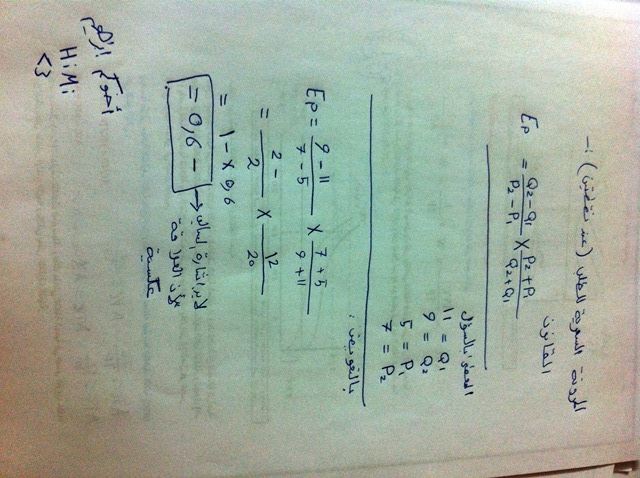 المرونة السعرية للطلب (عند نقطتين) :-
القانون
Ep = Q2-Q1 / P2-P1 X P2+P1 / Q2+Q1
المعطى بالسؤال
11 = Q1
9 = Q2
5 = P1
7 = P2
بالتعويض :
Ep = 9-11 / 7-5 X 7+5 / 9+11
= 2- / 2 X 12 / 20
= 1- X 0,6
= 0,6 -
لأن إشارة السالب
العلاقة
عكسية
أختكم
HiMi
<3